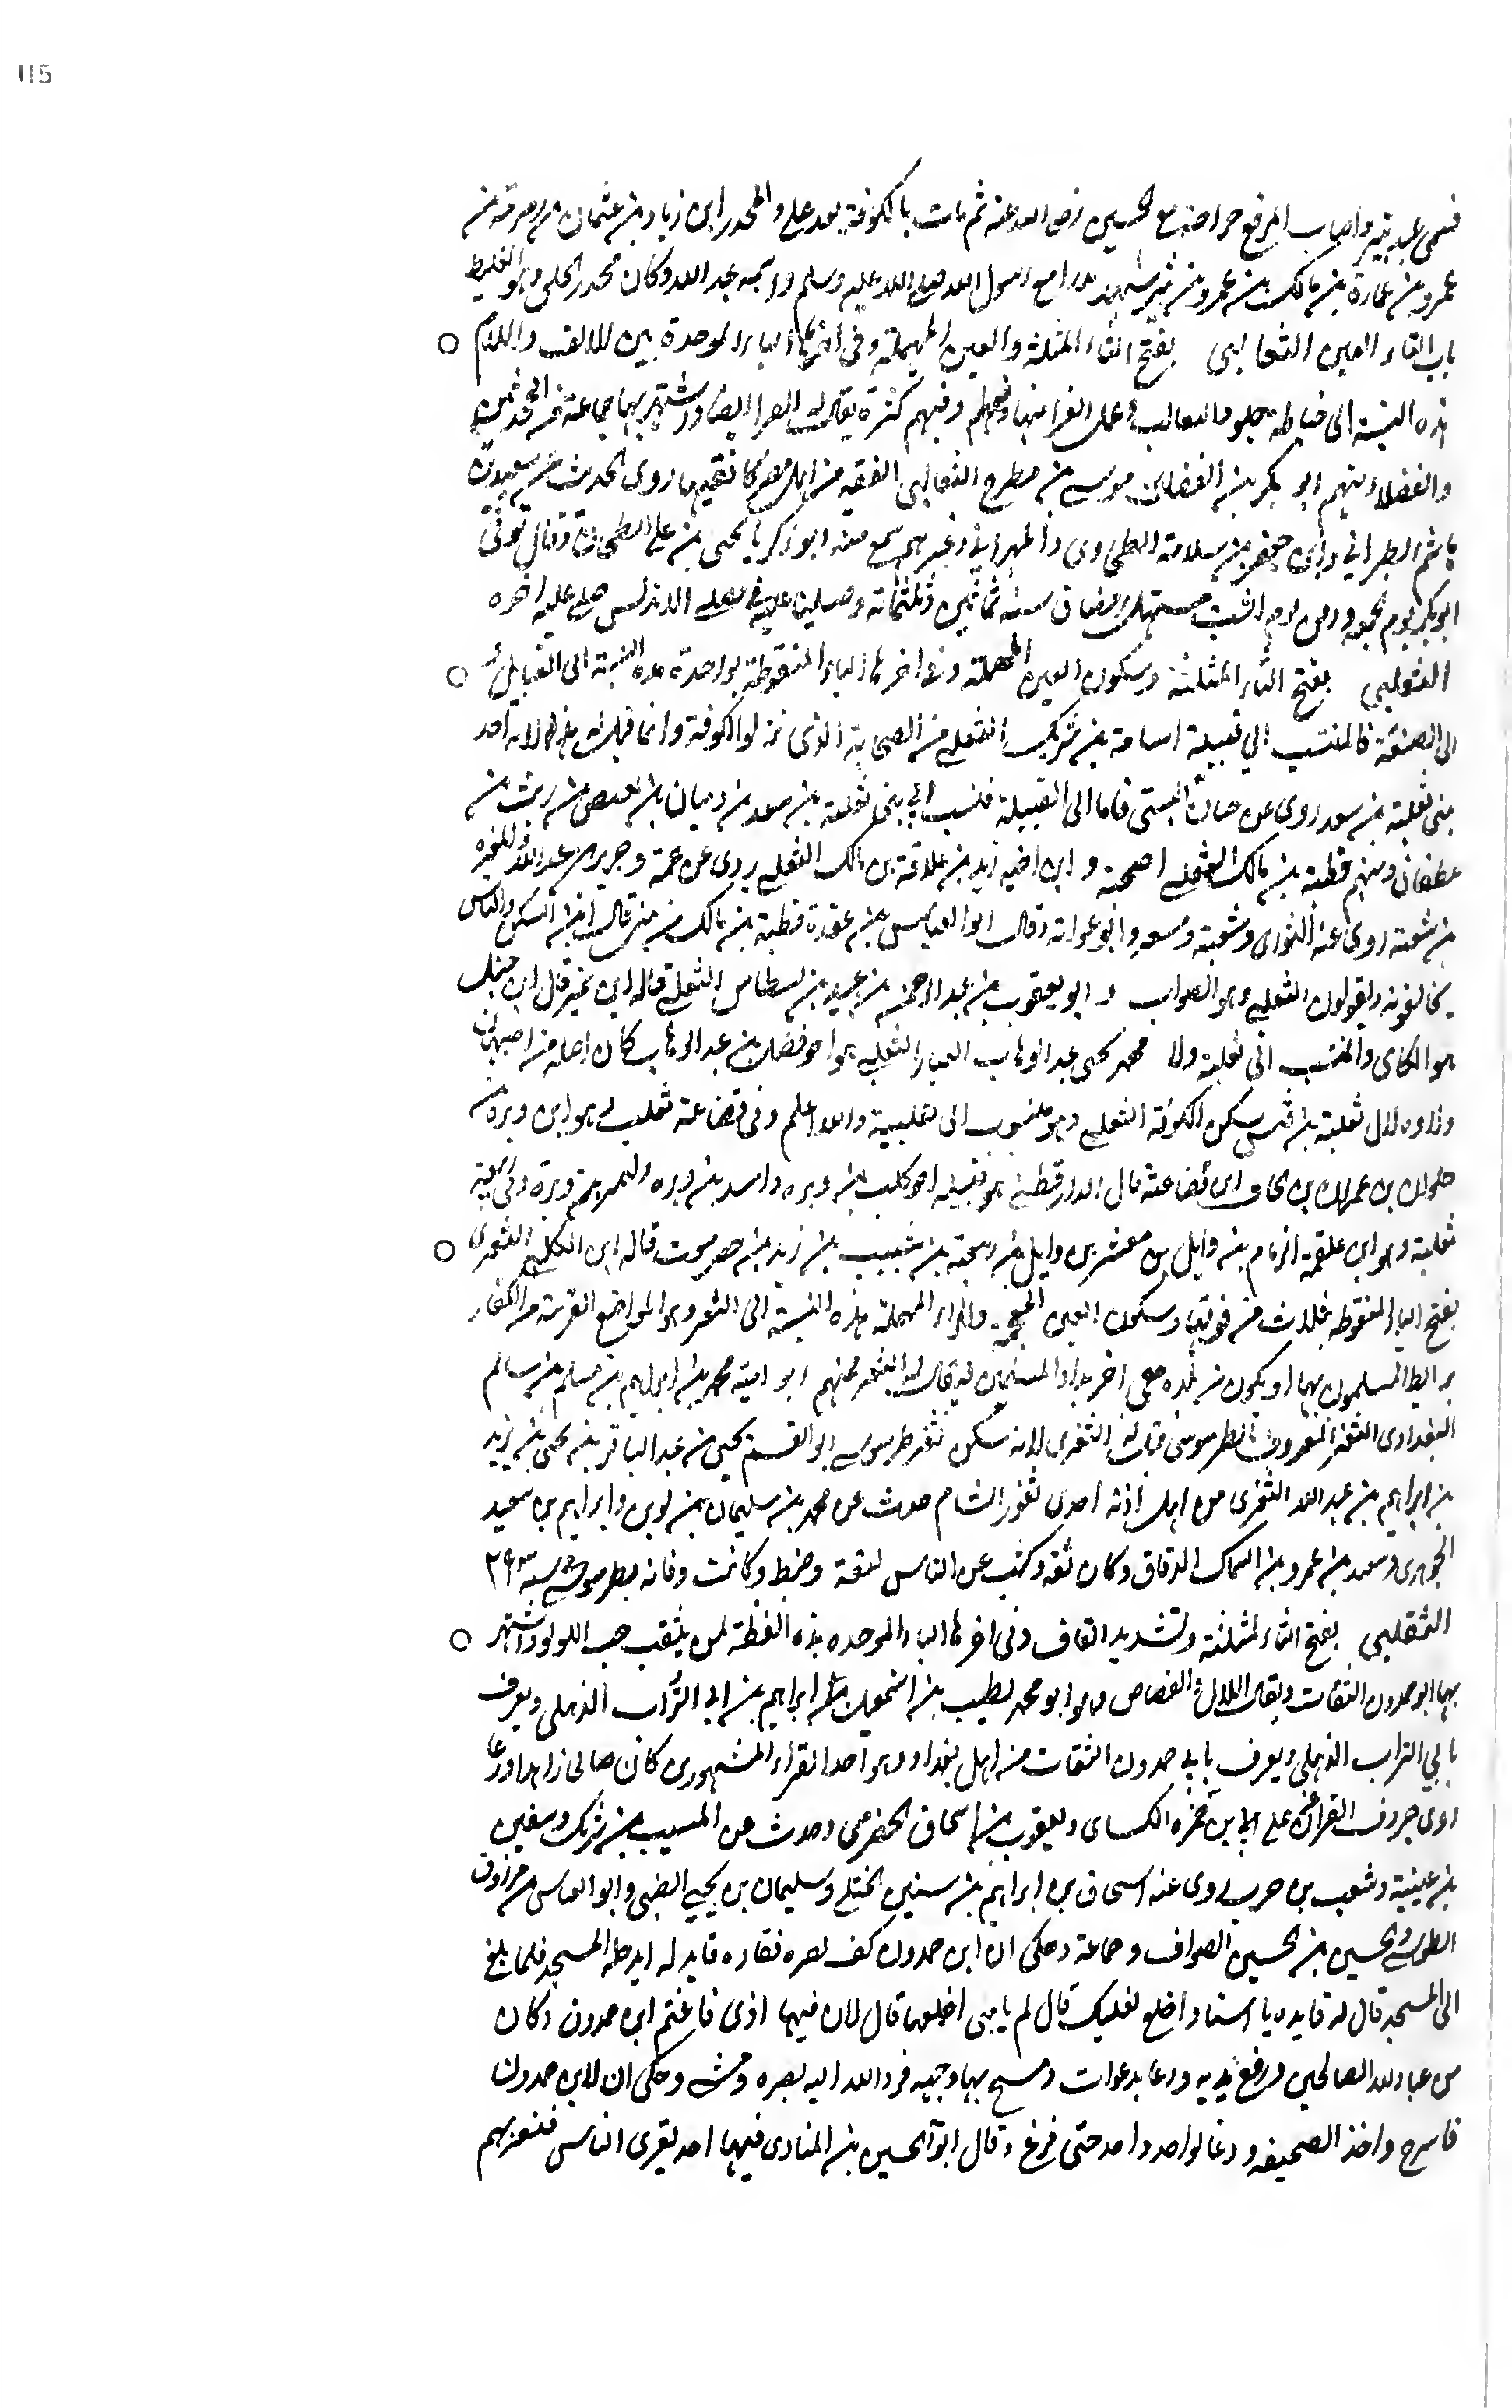 115
عمرو بن عمارة بن مالك بن عمرو بن بثيرة شهد بدرا مع رسول الله صلى الله عليه وسلم واسمه عبد الله وكان مجذر الخلق وهو الغليظ
باب الثاء العين الثعالبي بفتح الثاء المثلثة والعين المهملة وفي اخرها الباء الموحدة بين اللالف واللام
هذه النسبة الى خياطة جلود الثعالب وعمل الفرا منها وفيهم كثرة يقال له الفرا ايضا واشتهر بها جماعة من المحدثين
والفضلا منهم ابو بكر بن الفضل بن موسى بن مطرح الثعالبي الفقيه من اهل مصر كان فقيها روى الحديث عن سعيد بن
هاشم الطبراني وابي جعفر بن سلامة الطحاوي والمهراني وغيرهم سمع منه ابو زكريا يحيى بن علي الطحان وقال توفى
ابو بكر يوم الجمعة ودفن يوم السبت مستهل رمضان سنة ثمانين وثلثمائة وصلينا عليه في مصلى الاندلس صلى عليه اخوه
الثعلبي بفتح الثاء المثلثة وسكون العين المهملة وفي اخرها الباء المنقوطة بواحدة هذه النسبة الى القبايل و
الى الصنعة فالمنتسب الي قبيلة اسامة بن شريك الثعلبي من الصحابة الذي نزلوا الكوفة وانما قيل له هذا لانه احد
بني ثعلبة بن سعد روى عن حسان البستي فاما الى القبيلة فنسب الي بني ثعلبة بن سعد بن ذبيان بن بغيض بن ريث بن
غطفان ومنهم قطبة بن مالك الثعلبي له صحبة و ابن اخيه زيد بن علاقة بن مالك الثعلبي يروى عن عمه وجرير بن عبد الله والمغيرة
بن شعبة روى عنه الثوري وشعبة ومسعر وابو عوانة وقال ابو العباس بن عقدة قطبة بن مالك من بني ثعل قال ابن السكن والناس
يخالفونه ويقولون الثعلبي وهو الصواب و ابو يعقوب بن عبد الرحمن بن عبيد بن نسطاس الثعلبي قاله ابن نمير قال ابن حنبل
هو البكاي والمنتسب الى ثعلبة ولا محمد يحيى عبد الوهاب العبار الثعلبي هو اخو فضل بن عبد الوهاب كان اصله من اصبهان
ولاوه لال ثعلبة بن قيس سكن الكوفة الثعلبي وهو منسوب الى ثعلبية والله اعلم وفي قضاعة ثعلب وهو ابن وبرة بن
حلوان بن عمران بن الحاف ابن قضاعة قال الدارقطني هو قبيلة اخو كلب بن وبرة واسد بن وبره والنمر بن وبرة وفي ربيعة
ثعلبة وهو ابن علقمة الزمام بن وايل بن معشر بن وايل بن ربيعة بن شبيب بن زيد بن حضرموت قاله ابن الكلبي الثغري
بفتح الثاء المنقوطة بثلاث من فوقها وسكون الغين المعجمة والراء المهملة هذه النسبة الى الثغر وهو المواضع القريبة من الكفار
يرابط المسلمون بها او يكون في بلده هي اخر بلاد المسلمين فيقال لها الثغر فمنهم ابو امية محمد بن ابراهيم بن مسلم بن سالم
البغدادي الثغري المعروف بالطرسوسي قيل له الثغري لانه سكن ثغر طرسوس ابو القسم يحيى بن عبد الباقي بن يحيى بن يزيد
بن ابراهيم بن عبد الله الثغري من اهل اذنة احدى ثغور الشام حدث عن محمد بن سليمان بن لوين وابراهيم بن سعيد
الجوهري وسعد بن عمرو بن السماك الدقاق وكان ثقة وكتب عن الناس لثقة وضبط وكانت وفاته بطرسوس سنة ٢٩٣
الثقلبي بفتح الثاء المثلثة وتشديد القاف وفي اخرها الباء الموحدة هذه اللفظة لمن يثقب حب اللولو واشتهر
بها ابو حمدون الثقات ويقال اللال والفصاص وهو ابو محمد الطيب بن اسمعيل بن ابراهيم بن ابي التراب الذهلي ويعرف
بابي التراب الذهلي ويعرف بابي حمدون الثقات من اهل بغداد وهو احد القراء المشهورين كان صالحا زاهدا ورعا
روى حروف القران على علي بن حمزة الكساى ويعقوب بن اسحاق الحضرمي وحدث عن المسيب بن شريك وسفين
بن عيينة وشعيب بن حرب روى عنه اسحاق بن ابراهيم بن سنين الختلي وسليمان بن يحيى الضبي وابو العباس بن مسروق
الطوسي والحسين بن الحسين الصواف وجماعة وحكى ان ابن حمدون كف بصره فقاده قايد له ليدخله المسجد فلما بلغ
الى المسجد قال له قايده يا استاد اخلع نعليك قال لم يا بني اخلعهما قال لان فيها اذى فاغتم ابن حمدون وكان
من عباد الله الصالحين فرفع يديه ودعا بدعوات ومسح بها وجهه فرد الله اليه بصره ومشى وحكى ان لابن حمدون
فاسرج واخذ الصحيفة ودعا لواحد واحد حتى فرغ وقال ابو الحسين بن المنادي فيها احد يقرى الناس فنفعهم